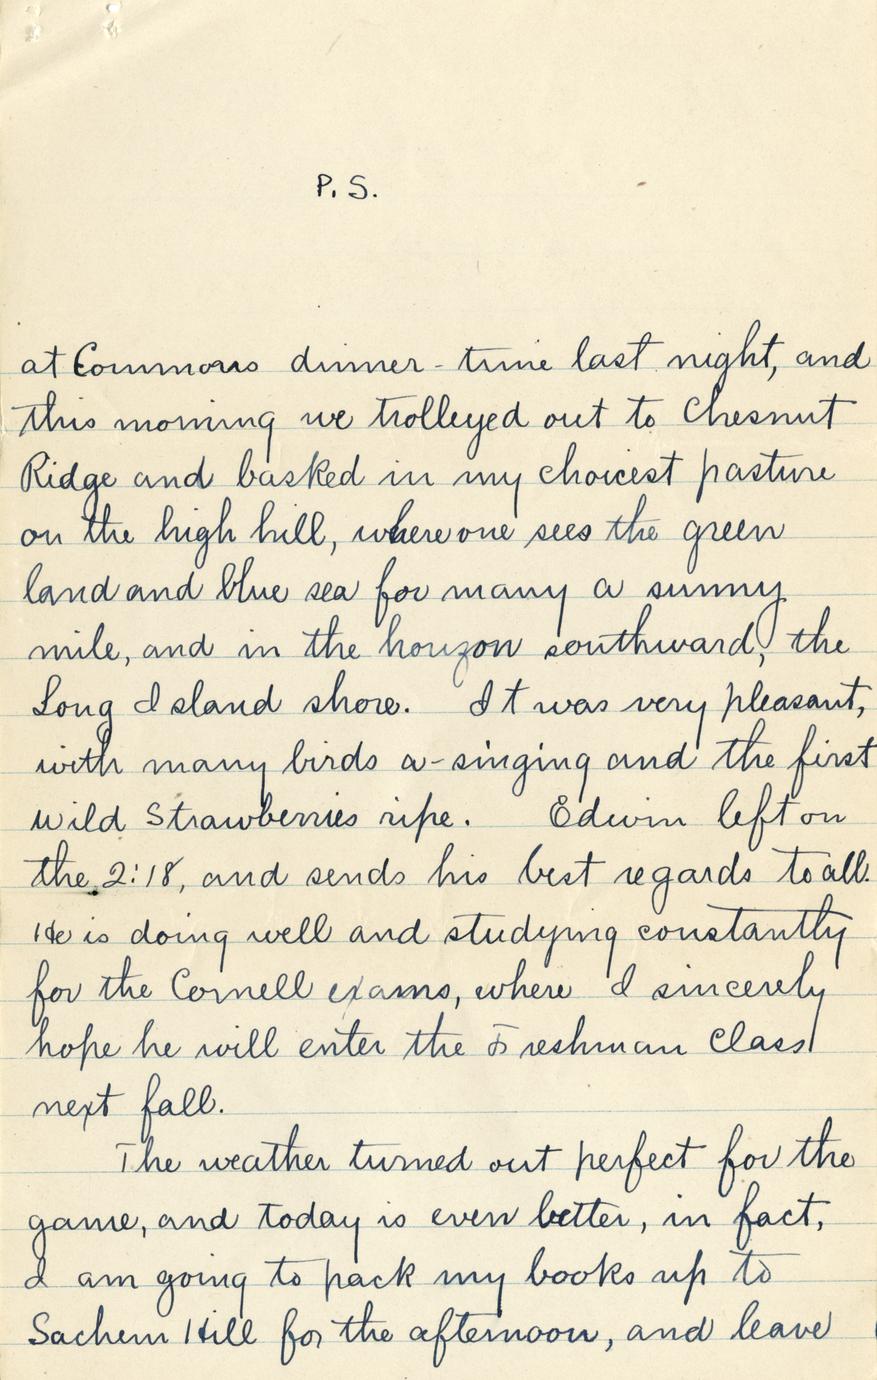 P. S.
at Commons dinner-time last night, and
this morning we trolleyed out to Chesnut
Ridge and basked in my choicest pasture
on the high hill, where one sees the green
land and blue sea for many a sunny
mile, and in the horizon southward, the
Long Island shore. It was very pleasant,
with many birds a-singing and the first
wild Strawberries ripe. Edwin left on
the 2:18, and sends his best regards to all.
He is doing well and studying constantly
for the Cornell exams, where I sincerely
hope he will enter the Freshman Class
next fall.
The weather turned out perfect for the
game, and today is even better, in fact,
I am going to pack my books up to
Sachem Hill for the afternoon, and leave